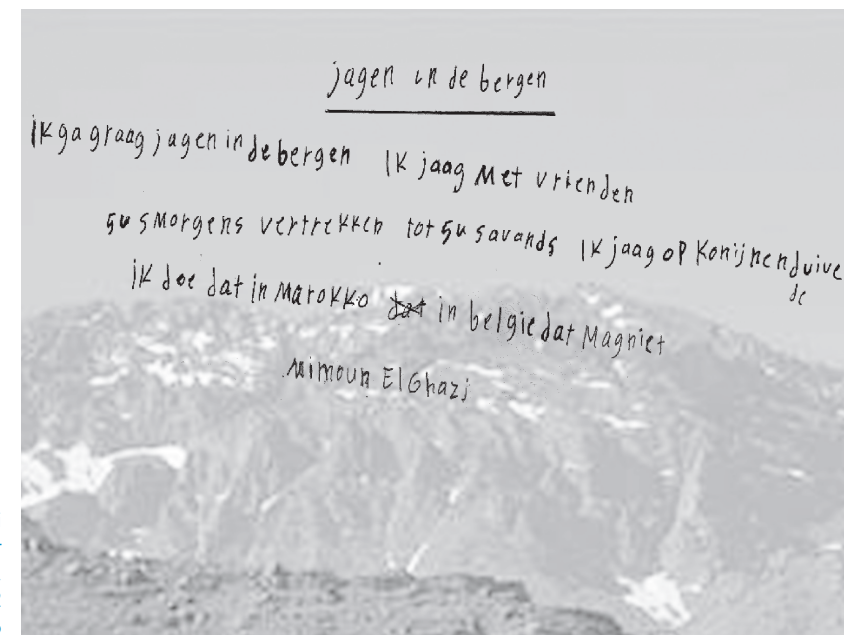 jagen in de bergen
ik ga graag jagen in de bergen ik jaag met vrienden
5u smorgens vertrekken tot 5u savands ik jaag op konijnen duive
de
ik doe dat in marokko dat in belgie dat magniet
mimoun El Ghazi